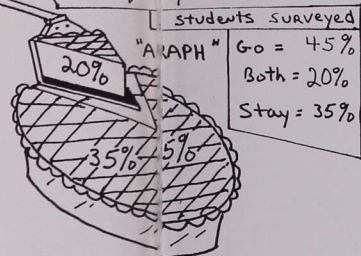 students surveyed
"A RAPH"
Go = 45%
Both = 20%
Stay = 35%
20%
35%
5%